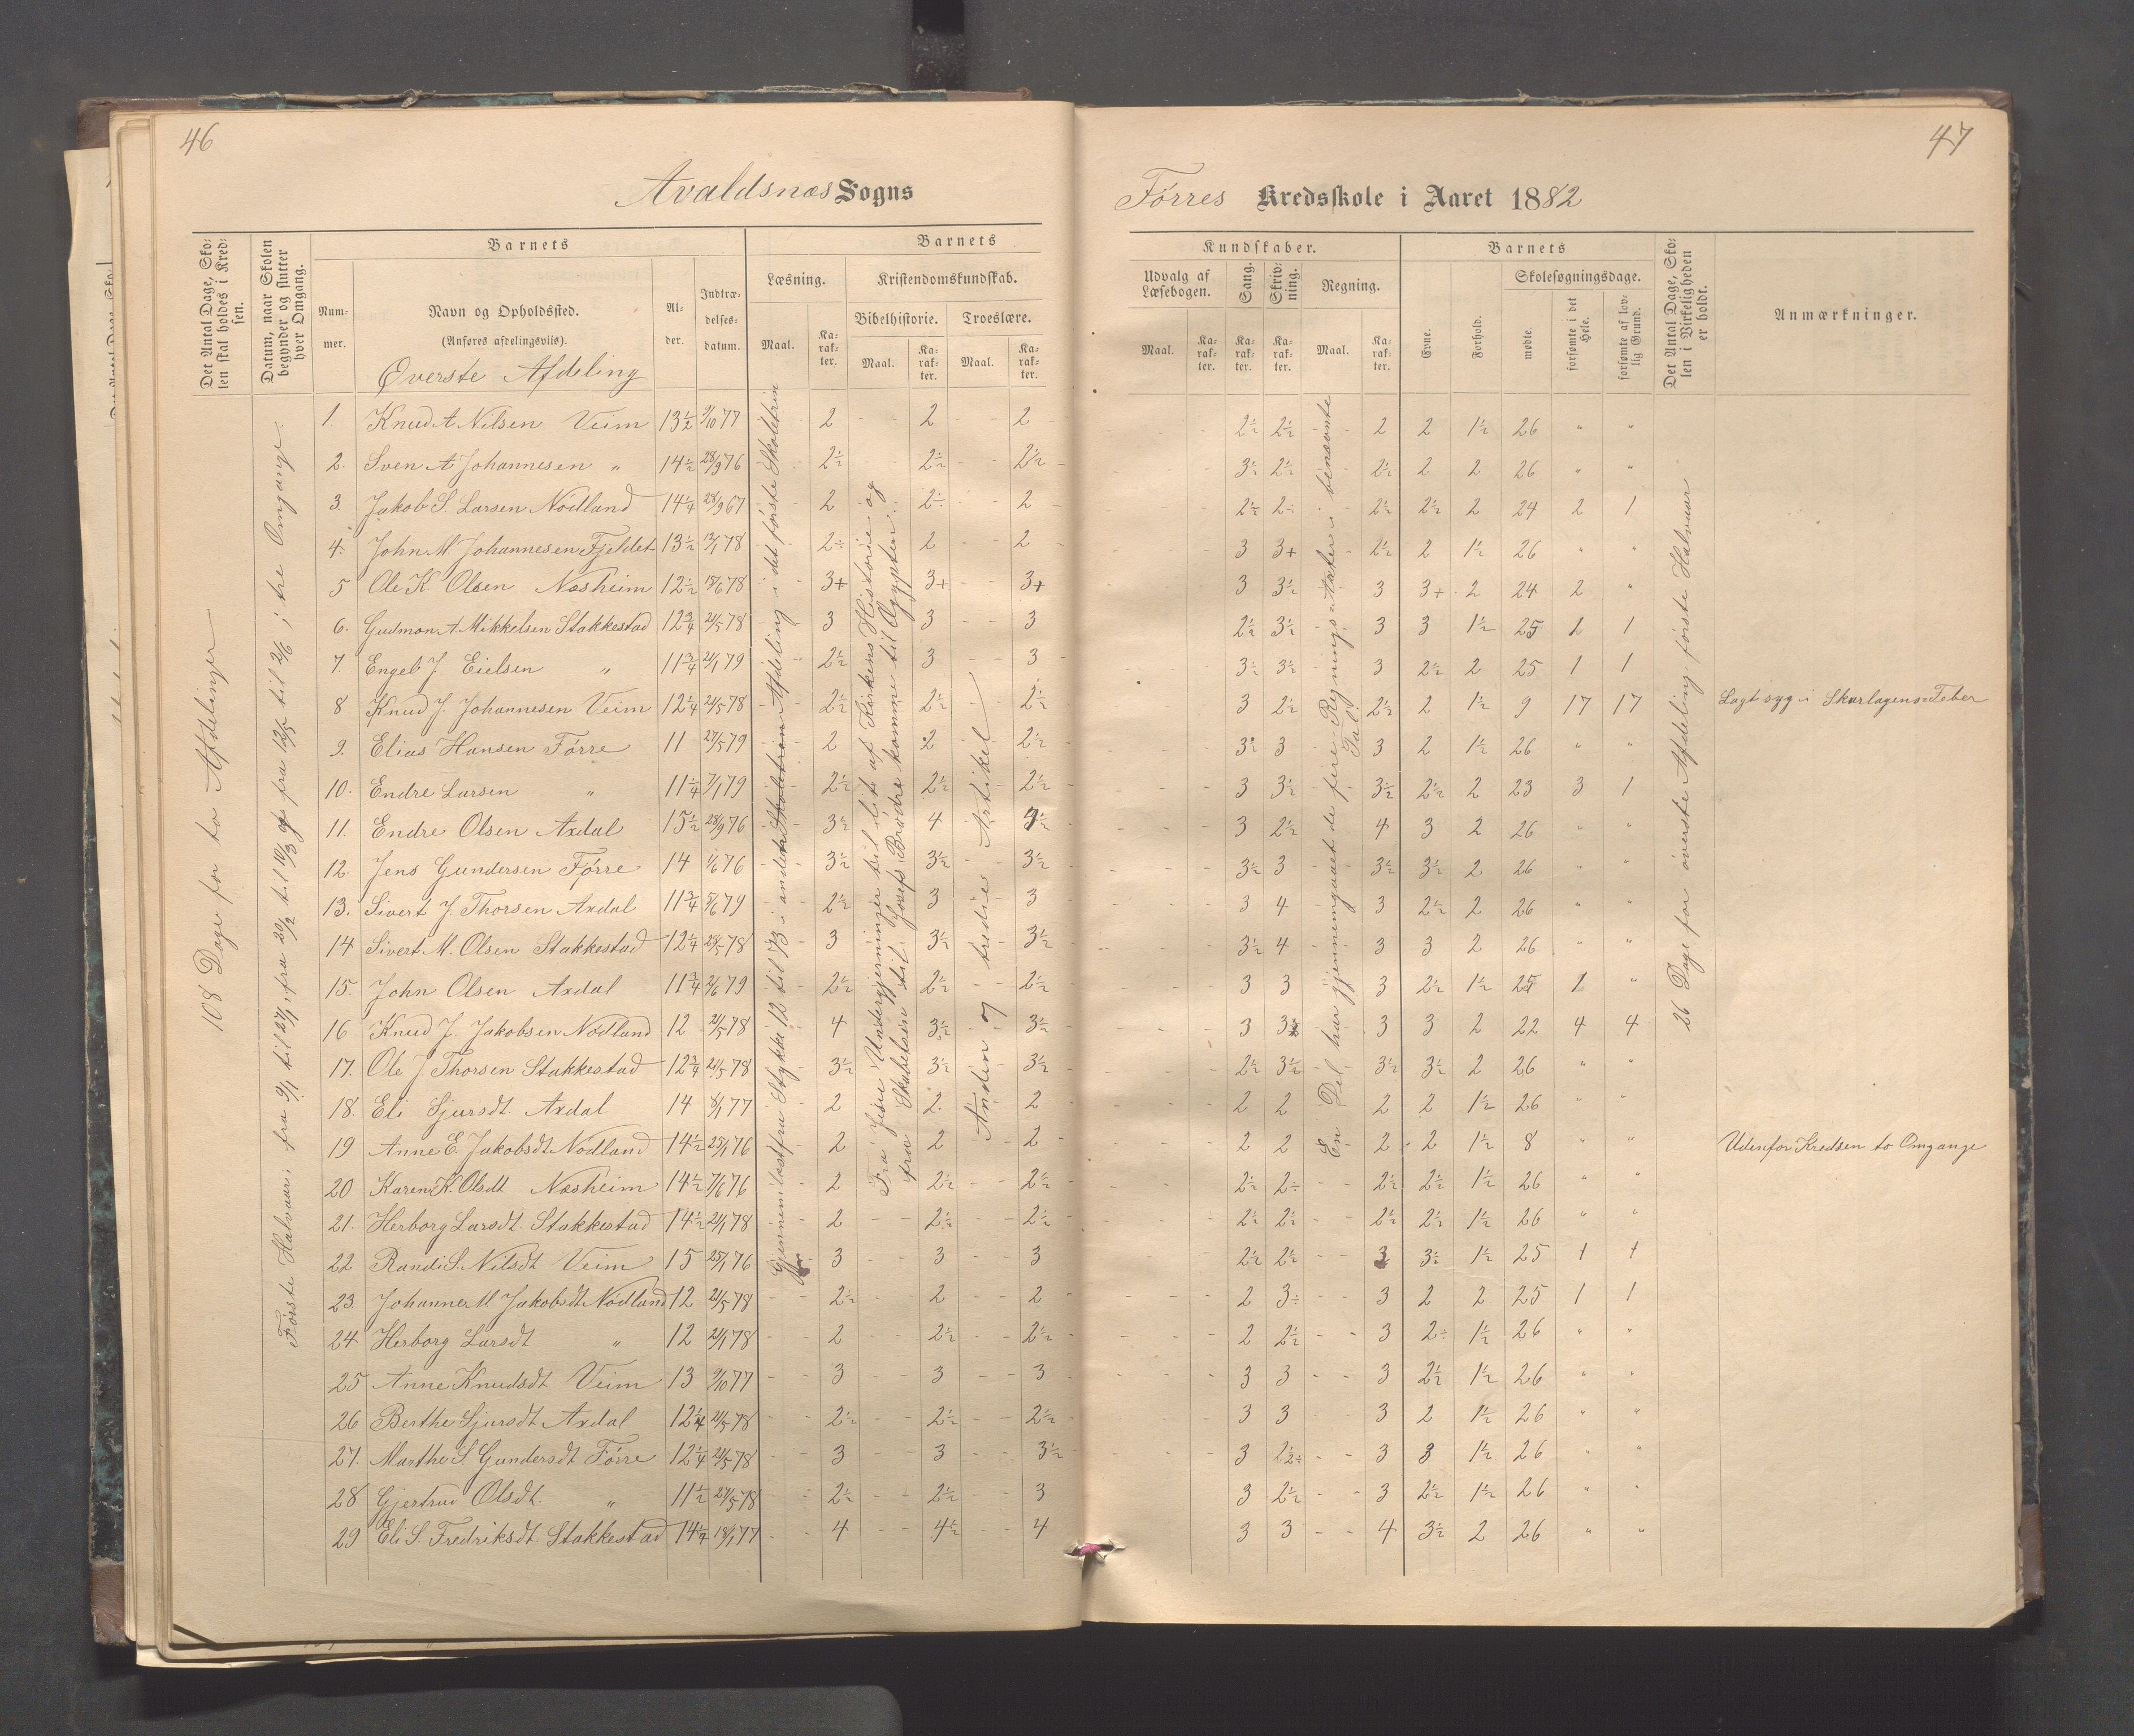 46
47
Avaldsnæs Sogns
Førres Kredsskole i Aaret 1882
Det Antal Dage, Skolen skal holdes i Kredsen.
Datum, naar Skolen begynder og slutter hver Omgang.
Barnets
Nummer.
Navn og Opholdssted.
(Anføres afdelingsviis).
Øverste Afdeling
Alder.
Indtrædelsesdatum.
Barnets
Læsning.
Maal.
Karakter.
Kristendomskundskab.
Bibelhistorie.
Maal.
Karakter.
Troeslære.
Maal.
Karakter.
Kundskaber.
Udvalg af Læsebogen.
Maal.
Karakter.
Sang.
Karakter.
Skrivning.
Karakter.
Regning.
Maal.
Karakter.
Barnets
Evne.
Forhold.
Skolesøgningsdage.
mødte.
forsømte i det Hele.
forsømte af lovlig Grund.
Det Antal Dage, Skolen i Virkeligheden er holdt.
Anmærkninger.
108 Dage for to Afdelinger
Første Halvaar: fra 9/1 til 27/1, fra 20/2 til 10/3 og fra 12/5 til 2/6 i tre Omgange.
Gjennemlæst fra Stykke 12 til 173 i andet Skoletrin Afdeling i det første Skoletrin
Fra Jesu Undergjerninger til lidt af Kirkens Historie og
fra Skabelsen til Josefs Brødre komme til Ægypten.
Anden og tredie Artikel
En Del har gjennemgaaet de fire Regningsarter i benævnte
Tal.
26 Dage for øverste Afdeling første Halvaar
1 Knud A Nilsen Veim 13½ 9/10 77 2 2 2 2½ 2½ 2 2 1½ 26 " "
2. Sven A Johannesen " 14½ 28/9 76 2½ 2½ 2½ 3½ 2½ 2½ 2 2 26 " "
3. Jakob S. Larsen Nødland 14¼ 28/9 67 2 2÷ 2 2½ 2÷ 2½ 2½ 2 24 2 1
4. John M. Johannesen Fjeldet 13½ 78 2÷ 2 2 3 3+ 2½ 2 1½ 26 " "
5 Ole K. Olsen Næsheim 12½ 18/6 78 3+ 3+ 3+ 3 3½ 3 3+ 2 24 2 "
6. Gudmon A. Mikkelsen Stakkestad 12¾ 21/5 78 3 3 3 2½ 3½ 3 3 1½ 25 1 1
7. Engel J. Eielsen " 11¾ 21/1 79 2½ 3 3 3½ 3½ 3 2½ 2 25 1 1
8 Knud J. Johannesen Veim 12¼ 21/5 78 2½ 2½ 2½ 3 2½ 2½ 2 1½ 9 17 17 Lagt syg i Skarlagens-Feber
9. Elias Hansen Førre 11 27/5 79 2 2 2½ 3½ 3 3 2 1½ 26 " "
10. Endre Larsen " 11¼ 7/1 79 2½ 2½ 2½ 3 3½ 3½ 2½ 2 23 3 1
11. Endre Olsen Axdal 15½ 28/9 76 3½ 4 3 2½ 4 3 2 26 " "
12. Jens Gundersen Førre 14 1/6 76 3½ 3½ 3½ 3½ 3 3½ 3½ 2 26 " "
13. Sivert J. Thorsen Axdal 11¾ 5/6 79 2½ 3 3 3 4 3 2½ 2 26 " "
14 Sivert M. Olsen Stakkestad 12¼ 28/5 78 3 3½ 3½ 3½ 4 3 3 2 26 " "
15. John Olsen Axdal 11¾ 2/6 79 2½ 2½ 2½ 3 3 3 2½ 1½ 25 1 "
16 Knud J. Jakobsen Nødland 12 21/5 78 4 3½ 3½ 3 3 3 3 2 22 4 4
17. Ole J. Thorsen Stakkestad 12¾ 21/5 78 3½ 3½ 3½ 2½ 3½ 3½ 3½ 2 26 " "
18. Eli Sjursdt. Axdal 14 8/1 77 2 2 2 2 2 2 2 1½ 26 " "
19 Anne E. Jakobsdt Nødland 14½ 25/1 76 2 2 2 2 2 2 2 1½ 8 " " Udenfor Kredsen to Omgange
20 Karen K. Olsdt Næsheim 14½ 7/6 76 2 2½ 2½ 2½ 2÷ 2½ 2½ 1½ 26 " "
21. Herborg Larsdt. Stakkestad 14½ 21/1 78 2 2½ 2½ 2½ 2½ 2½ 2½ 1½ 26 " "
22 Randi S. Nilsdt Veim 15 25/1 76 3 3 3 2½ 2½ 3 3½ 1½ 25 1 1
23. Johanne M Jakobsdt Nødland 12 21/5 78 2½ 2 2 2 3÷ 3 2 2 25 1 1
24 Herborg Larsdt " 12 21/1 78 2 2½ 2½ 2 2½ 3 2÷ 1½ 26 " "
25 Anne Knudsdt Veim 13 9/10 77 3 3 3 3 3 3 2½ 1½ 26 " "
26 Berthe Sjursdt Axdal 12¼ 21/5 78 2½ 2½ 2½ 3 3 3 2 1½ 26 " "
27. Marthe S. Gundersdt Førre 12¼ 21/5 78 3 3 3½ 3 2½ 3 3 1½ 26 " "
28 Gjertrud Olsdt. " 11½ 27/5 78 2½ 2½ 3 3 2½ 3 2½ 1½ 26 " "
29 Eli S. Fredriksdt. Stakkestad 14¼ 18/1 77 4 4½ 4 3 3 4 3½ 2 26 " "